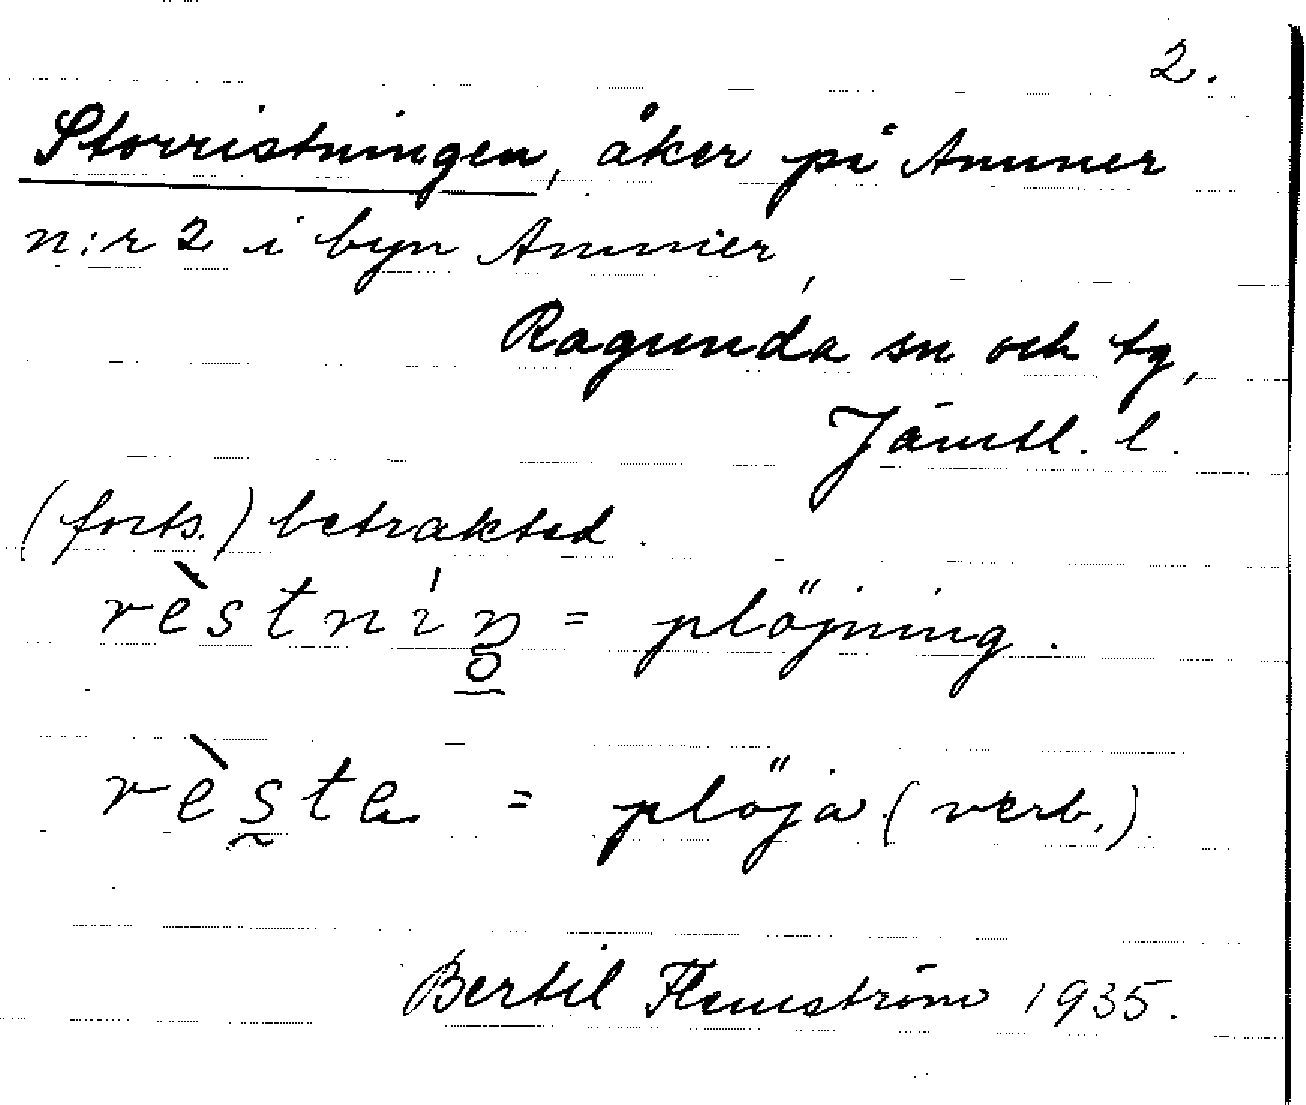 2.
Storristningen, åker på Ammer
n:r 2 i byn Ammer,
Ragunda sn och tg,
Jämtl. l.
(forts.) betraktad.
rèstniŋ = plöjning.
rèsta = plöja (verb.)
Bertil Flemström 1935.